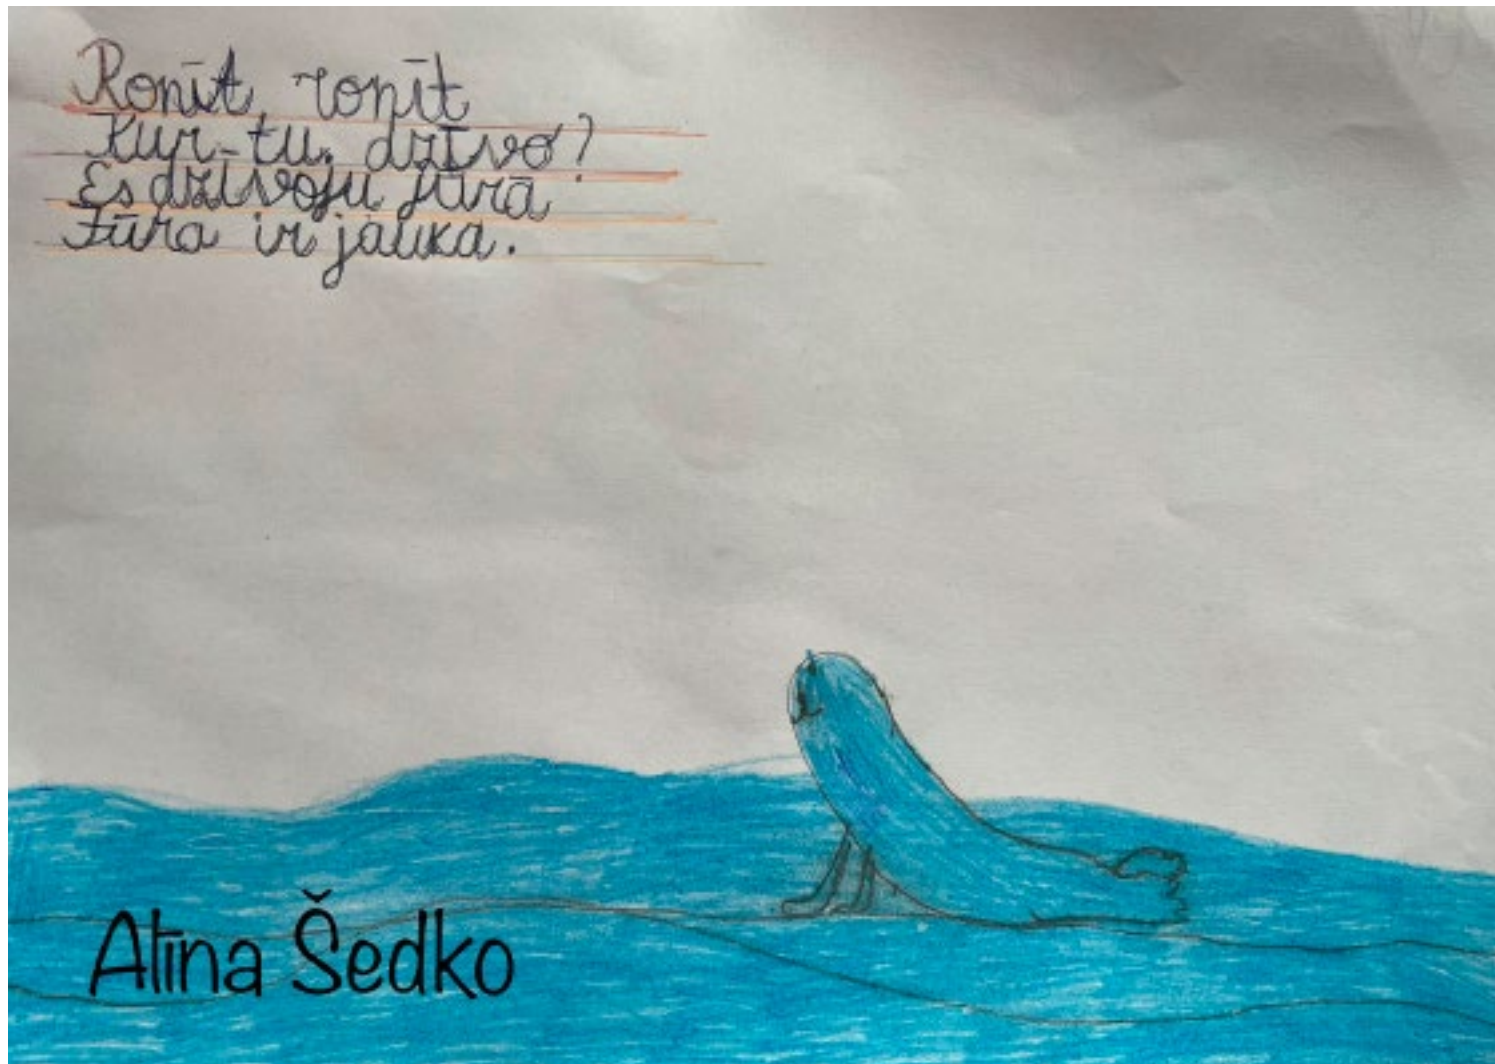 Ronīt, ronīt
Kur tu dzīvo?
Es dzīvoju jūrā
Jūra ir jauka.
Alīna Šedko